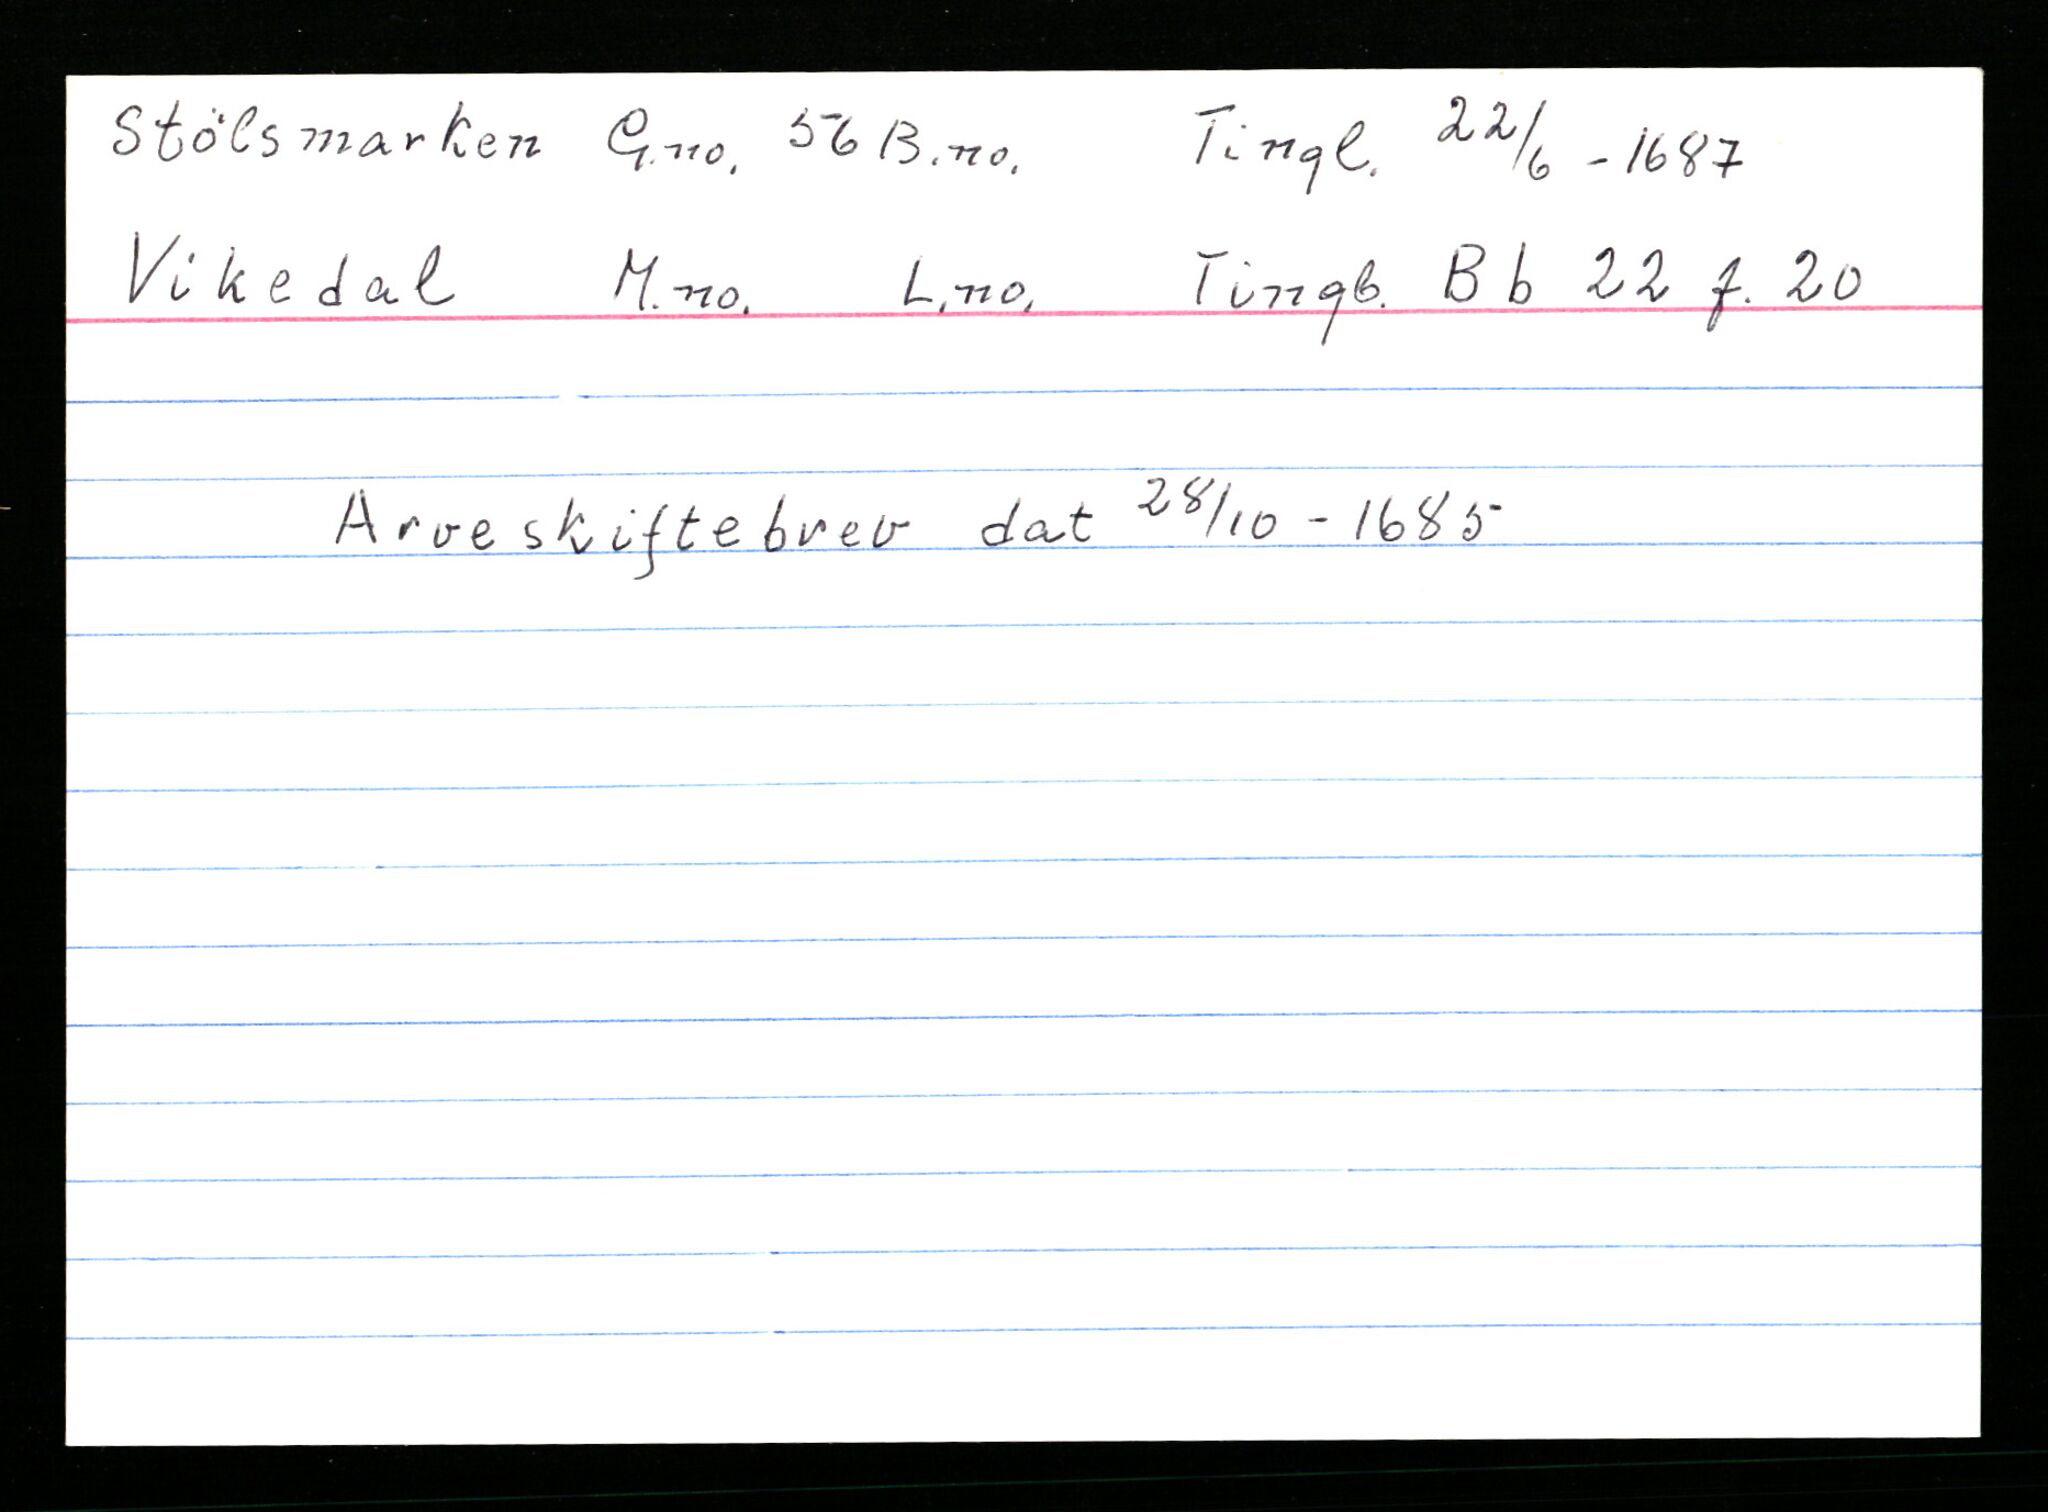 Stölsmarken G.no. 56 B.no. Tingl. 22/6 - 1687
Vikedal M.no. L.no. Tingb. Bb 22 f. 20
Arveskiftebrev dat 28/10 - 1685